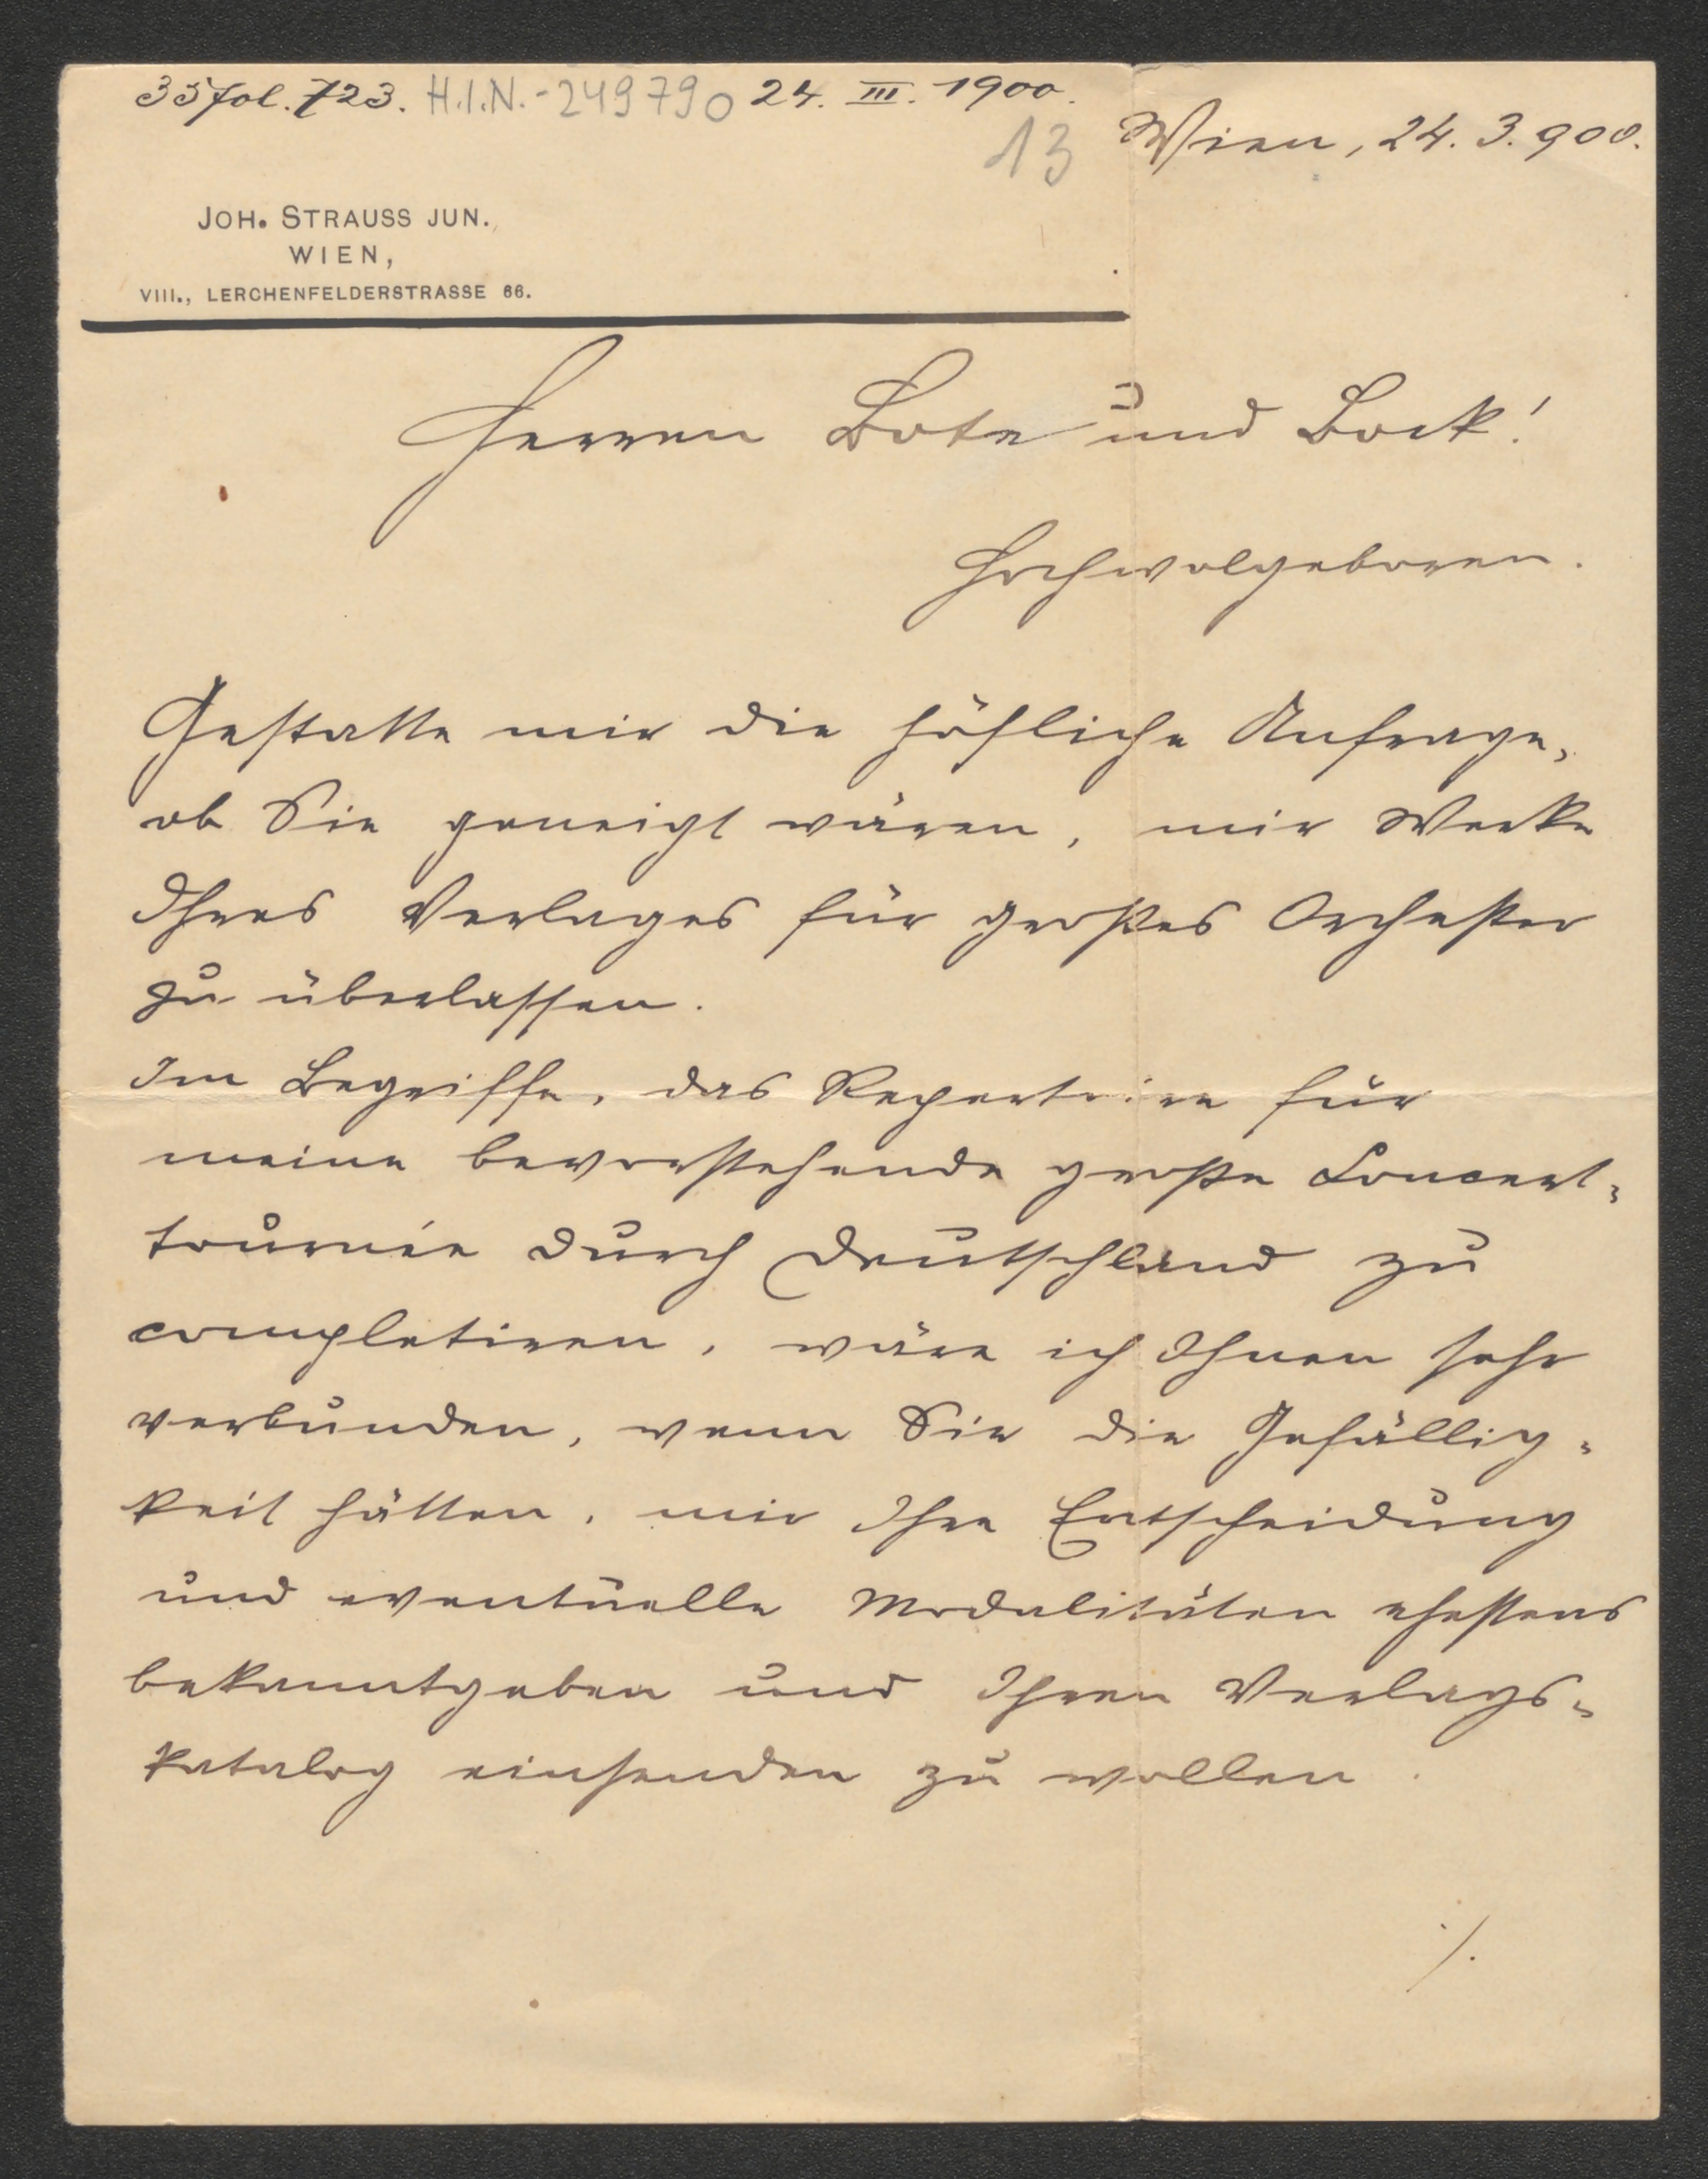 35 fol. 723. H.I.N.-249790 24. III. 1900.
13
Wien, 24. 3. 900.
JOH. STRAUSS JUN.
WIEN,
VIII., LERCHENFELDERSTRASSE 66.
Herren Bote und Bock!
Hochwolgeboren.
Gestatte mir die höfliche Anfrage,
ob Sie geneigt wären, mir Werke
Ihres Verlages für großes Orchester
zu überlassen.
Im Begriffe, das Repertoire für
meine bevorstehende große Concert-
tournée durch Deutschland zu
completiren, wäre ich Ihnen sehr
verbunden, wenn Sie die Gefällig-
keit hätten, mir Ihre Entscheidung
und eventuelle Modalitäten ehestens
bekanntgeben und Ihren Verlags-
katalog einsenden zu wollen.
./.